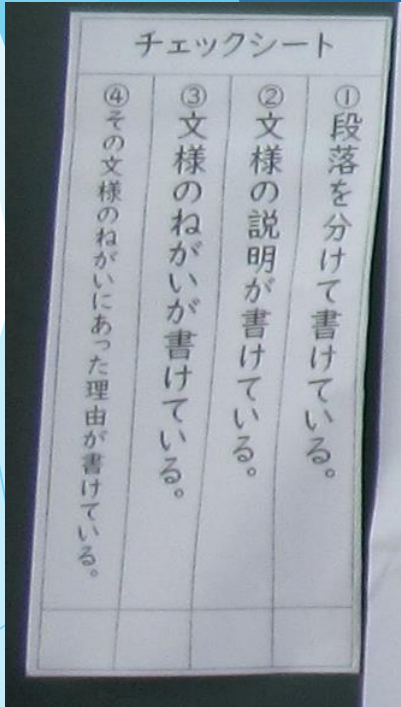 チェックシート
①段落を分けて書けている。
②文様の説明が書けている。
③文様のねがいが書けている。
④その文様のねがいにあった理由が書けている。